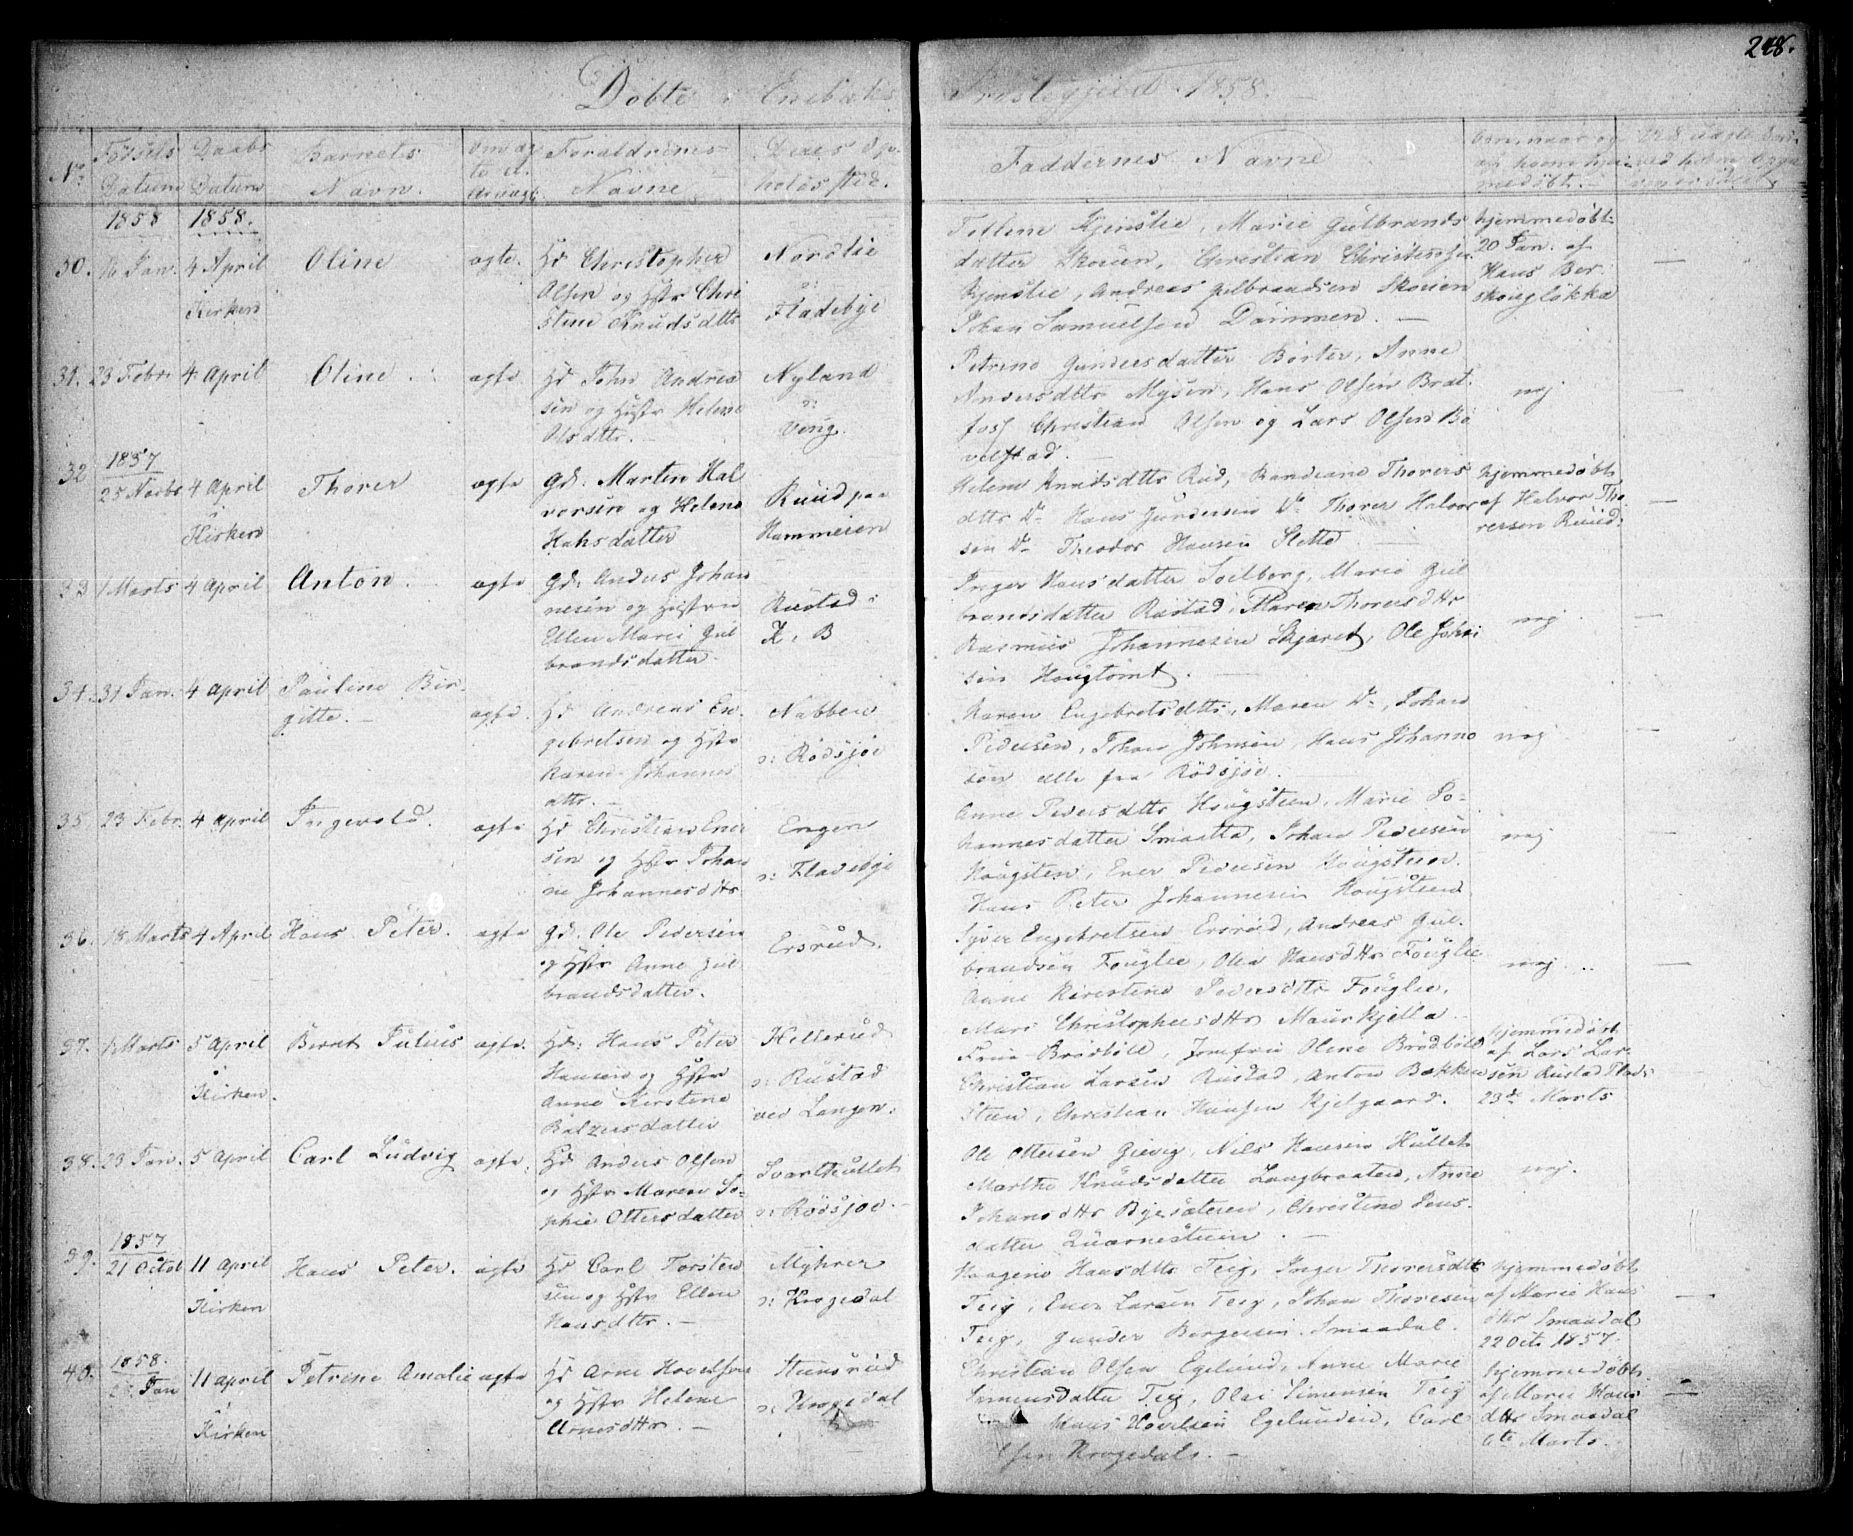 248.
Døbte i Enebaks Præstegjeld 1858.
No Fødsels Datum Daabs Datum Barnets Navn. om ægte el. uægte Forældrenes Navne Deres Opholdssted. Faddernes Navne
1858 1858.
30. 16 Jan. 4 April Kirken Oline ægte. Gd Christopher Olsen og Hstr Christine Knudsdttr Nordlie u: Fladebye
Kjenslie, Marie Gulbrands
datter Skouen, Christian Christensen
Kjenslie, Andreas Gulbrandsen Skouen
Johan Samuelsen Dammen. —
hjemmedøbt 20 Jan. af Hans Berskougløkka —
31. 23 Febr. 4 April Oline ægte Hd John Andresen og Hustr Helene Olsdttr. — Nyland u: Vaag.
Petrine Gundersdatter Børter, Anne
Andersdttr Mysen, Hans Olsen Brat
foss Christian Olsen og Lars Olsen Bø
velstad. —
nej —
1857
32 25 Novbr 4 April i Kirken Thorer ægte Gd: Marten Halvorsen og Helene Hansdatter Ruud paa Hammeren
Helene Knudsdttr Rud, Randiane Thorers
dttr Do Hans Gundersen Do Thorer Halvor
sen Do Theodor Hansen Slette
hjemmedøbt af Halvor Thorersen Ruud. —
33 1 Marts 4 April Anton. ægte Gd: Anders Johannesen og Hustru Ellen Marie Gulbrandsdatter. Rustad i K. B
Inger Hansdatter Solberg, Marie Gul
brandsdatter Rustad, Maren Thorersdttr
Rasmus Johannesen Skjæret, Ole Johan
sen Hougtomt.
nej —
34. 31 Jan. 4 April Pauline Birgitte. — ægte. Hd Andreas Engebretsen og Hstr Karen Johannesdttr. — Nabben u: Rødsjøe
Karen Engebretsdttr, Maren Do, Johan
Pedersen, Johan Johnsen, Hans Johanne
sen alle fra Rødsjøe.
nej —
35. 23 Febr. 4 April Ingevold. ægte Hd Christian Enersen og Hstr Johanne Johannesdttr Engen u: Fladebye
Anne Pedersdttr Hougsteen, Marie Jo-
hannesdatter Smaatta, Johan Pedersen
Hougsten, Ener Pedersen Hougsteen.
Hans Peter Johannesen Hougsteen
nej —
36. 18 Marts 4 April Hans Peter. ægte Gd. Ole Pedersen og Hstr Anne Gulbrandsdatter. Ersrud.
Syver Engebretsen Ersrud, Andreas Gul-
brandsen Fouglee, Olea Hansdttr Fouglee
Anne Kirstine Pedersdttr Fouglee.
nej. —
37. 1 Marts 5 April i Kirken. Bernt Julius ægte. Hd: Hans Peter Hansen og Hstr Anne Kirstine Balzersdatter Hellerud u: Rustad ved Langen.
Mari Christophersdttr Maurkjella
Frue Brødbøll, Jomfru Olene Brødbøll
Christian Larsen Rustad, Anton Bakken
Stuen, Christian Hansen Kjelgaard.
hjemmedøbt af Lars Larsen Rustad Plads 23de Marts
38. 23 Jan. 5 April Carl Ludvig ægte. Hd Anders Olsen og Hstr Maren Sophie Ottersdatter Svarthullet u: Rødsjøe. —
Ole Ottersen Gievig, Nils Hansen Hullet
Marthe Knudsdatter Langbraaten, Anne
Johansdttr Byesæteren, Christine Jens-
datter Quærnesteen. —
nej.
1857
39. 21 Octob 11 April i Kirken Hans Peter. ægte Hd Carl Torstensen og Hstr Ellen Hansdttr. — Myhrer u: Krogedal
Haagene Hansdttr Teig, Inger Thorersdttr
Teig, Ener Larsen Teig, Johan Thoresen
Teig, Gunder Borgersen Smaadal.
hjemmedøbt af Marie Hansdttr Smaadal 22 Oct. 1857. —
1858.
40. Jan 11 April i Kirken Petrine Amalie ægte Hd Arne Hovelsen og Hstr Helene Arnesdttr. — Stensrud u: Krogedal
Christian Olsen Egelund, Anne Marie
Simensdatter Teig, Olai Simensen Teig
Hans Hovelsen Egelunden, Carl
Olsen Krogedals. —
hjemmedøbt af Marie Hansdttr Smaadal 6te Marts. —